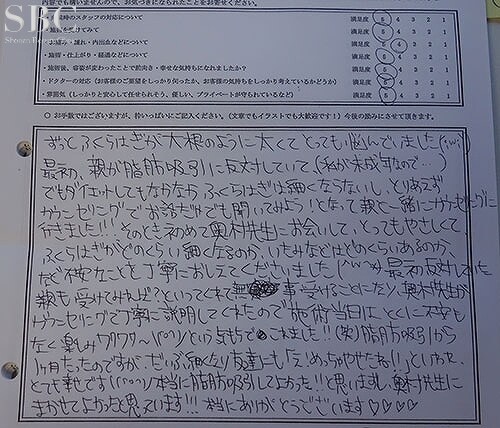 内容でも構いませんので、お気づきになられたことをお書きください。
SBC
・受付のスタッフの対応について 満足度 5 4 3 2 1
・施術を受けてみて 満足度 5 4 3 2 1
・お痛み・腫れ・内出血などについて 満足度 5 4 3 2 1
・施術・仕上がり・経過などについて 満足度 5 4 3 2 1
・施術後、容姿が変わったことで前向き・幸せな気持ちになれましたか? 満足度 5 4 3 2 1
・ドクターの対応(お客様のご要望をしっかり伺ったか、お客様の気持ちをしっかり考えているかどうか) 満足度 5 4 3 2 1
・雰囲気(しっかりと安心して任せられそう、優しい、プライベートが守られているなど) 満足度 5 4 3 2 1
○ お手数ではございますが、枠いっぱいにご記入ください。(文章でもイラストでも大歓迎です!)今後の励みにさせて頂きます。
ずっとふくらはぎが大根のように太くてとっても悩んでいました
最初、親が脂肪吸引に反対していて、(私が未成年なので…)
でもダイエットしてもなかなかふくらはぎは細くならないし、とりあえず
カウンセリングでお話だけでも聞いてみよう!となって親と一緒にカウンセリングに
行きました!!! そのとき初めて奥村先生にお会いして、とってもやさしくて
ふくらはぎがどのくらい細くなるのか、いたみなどはどのくらいあるのか、
など不安なことを丁寧におしえてくださいました(^ω^)最初反対していた
親も受けてみれば?といってくれて無事受けることになり、奥村先生が
カウンセリングで丁寧に説明してくれたので施術当日は、とくに不安も
なく楽しみワクワク~(^o^)という気持ちでこれました!!(笑)脂肪吸引から
1ヶ月たったのですが、だいぶ細くなり友達にも「え!めっちゃやせたね!!」といわれ、
とても幸せです!(^o^)本当に脂肪吸引してよかった!!と思いますし、奥村先生に
まかせてよかったと思っています!!! 本当にありがとうございます♡♡♡♡